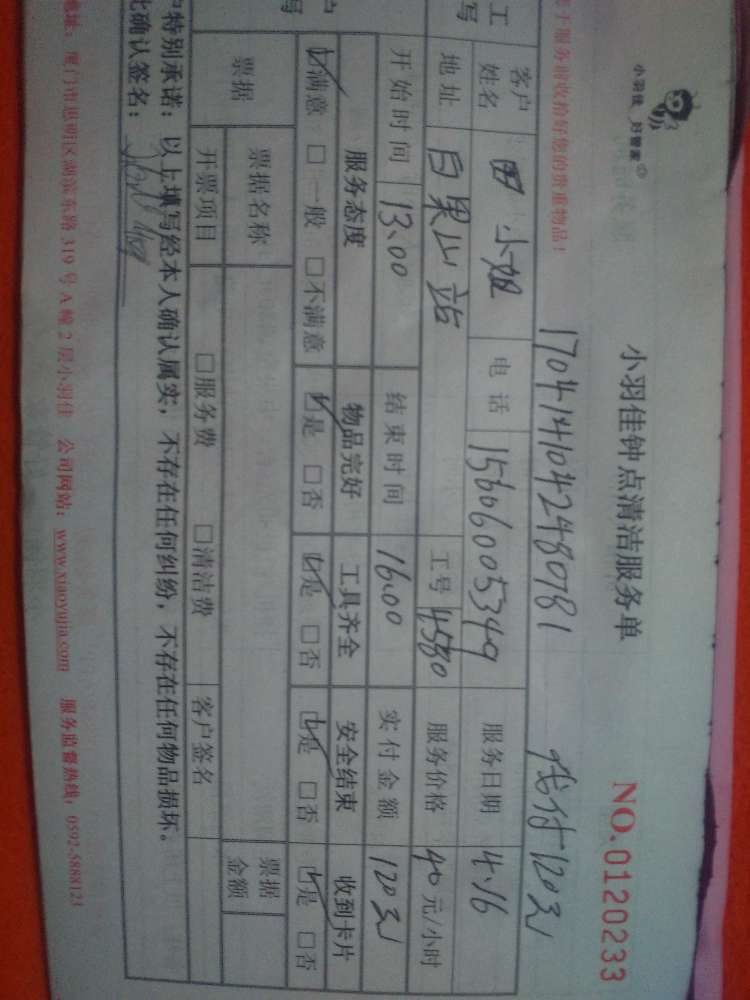 小羽佳 好管家
小羽佳钟点清洁服务单
NO.0120233
于服务前收拾好您的贵重物品!
1704141042480781
代付120元
客户姓名 田小姐 电话 15606005349 服务日期 4.16
地址 白果山站 工号 4580 服务价格 40元/小时
开始时间 13.00 结束时间 16.00 实付金额 120元
服务态度 物品完好 工具齐全 安全结束 收到卡片
☑满意 □一般 □不满意 ☑是 □否 ☑是 □否 ☑是 □否 ☑是 □否
票据 票据名称 票据金额
开票项目 □服务费 □清洁费 客户签名
特别承诺:以上填写经本人确认属实,不存在任何纠纷,不存在任何物品损坏。
确认签名:
地址:厦门市思明区湖滨东路319号A幢2层小羽佳 公司网站:www.xiaoyujia.com 服务监督热线:0592-5888123